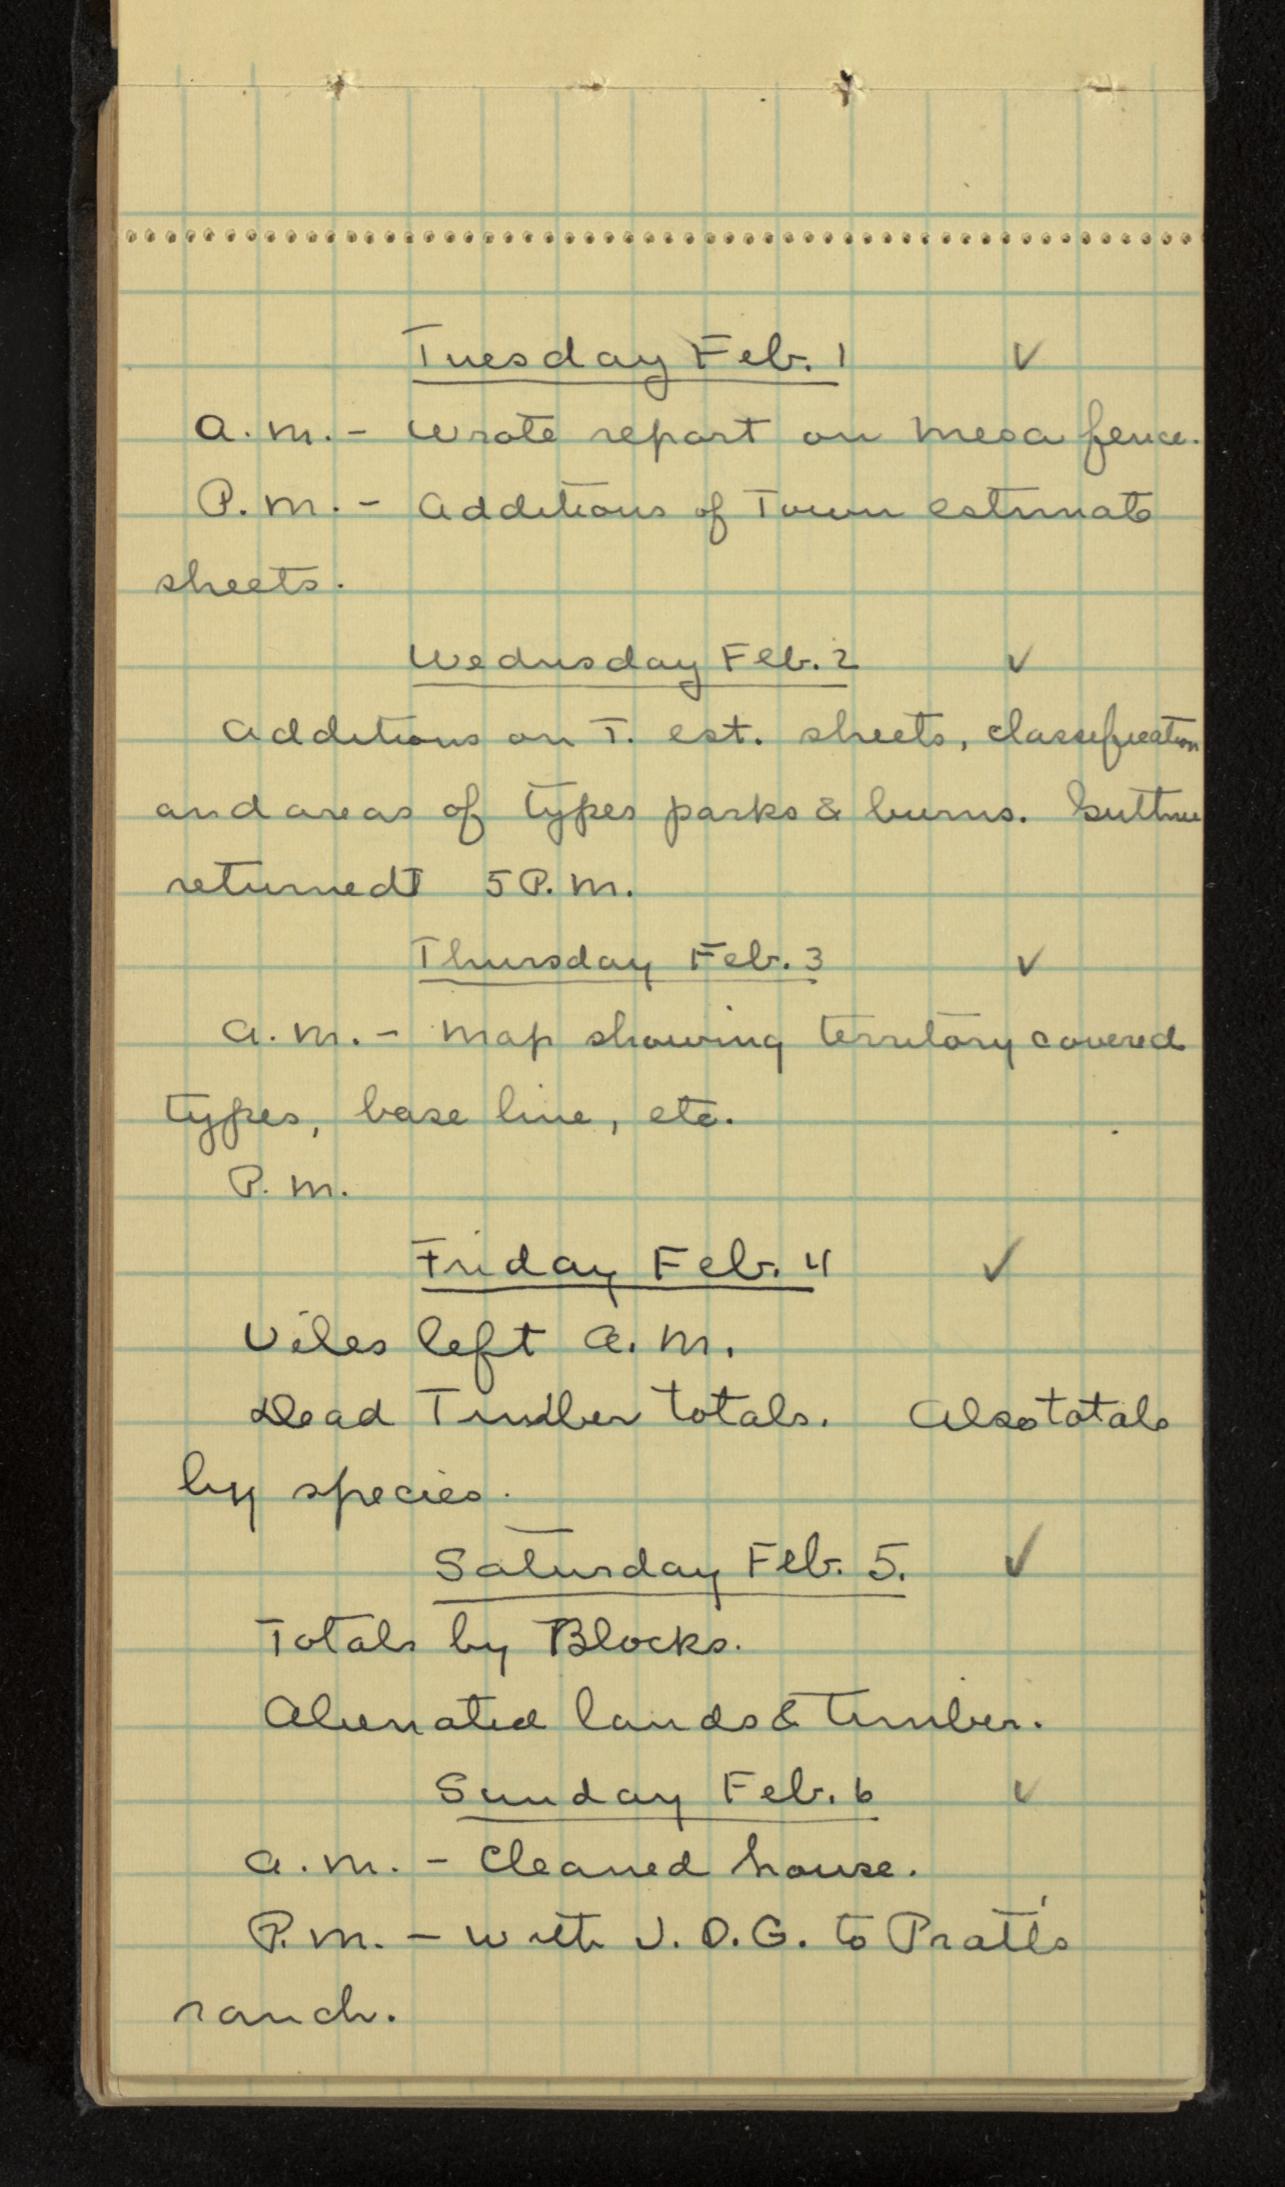 Tuesday Feb. 1 ✓
A.M. - Wrote report on mesa fence.
P.M. - Additions of Town estimate
sheets.
Wednsday Feb. 2 ✓
Additions on T. est. sheets, classification
and areas of types parks & burns.
returned 5 P.M.
Thursday Feb. 3 ✓
A.M. - Map showing territory covered
types, base line, etc.
P.M.
Friday Feb. 4 ✓
Viles left A.M.
Dead Timber totals. Also totals
by species.
Saturday Feb. 5. ✓
Totals by Blocks.
Alienated lands & timber.
Sunday Feb. 6 ✓
A.M. - Cleaned house.
P.M. - with J.O.G. to Pratt's
ranch.